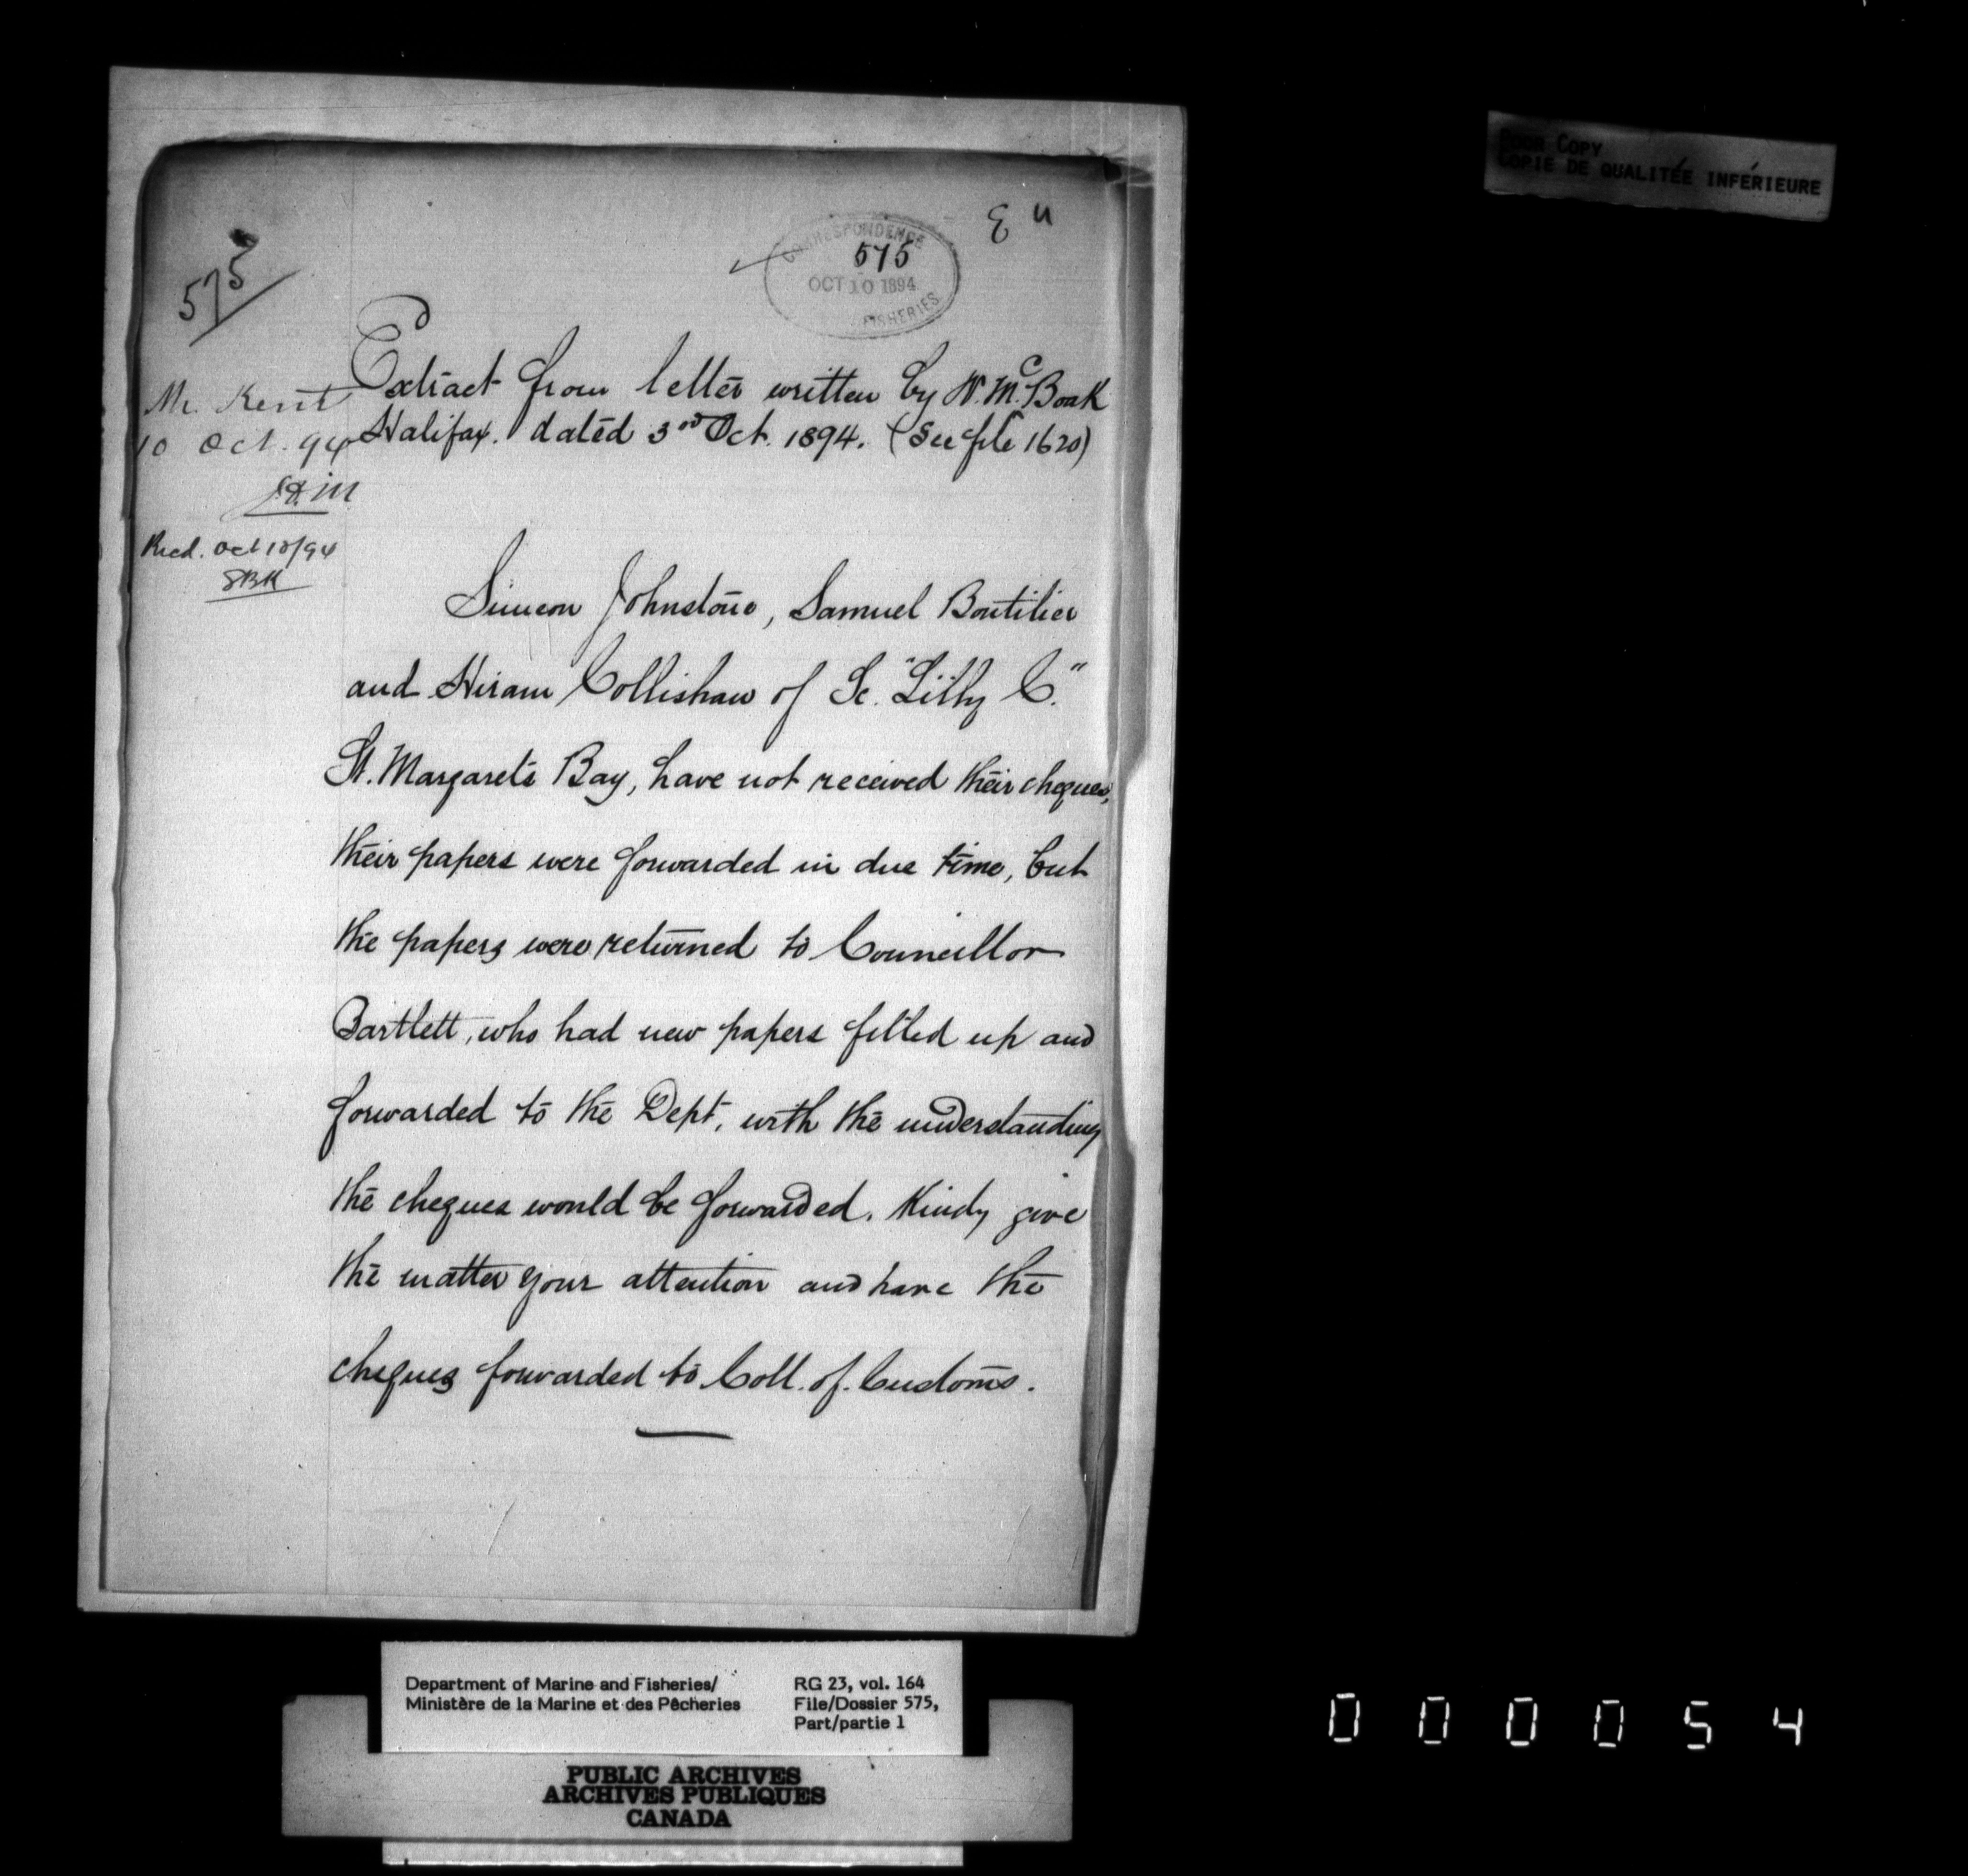 POOR COPY
COPIE DE QUALITÉE INFÉRIEURE
E 11
575
CORRESPONDENCE
575
OCT 10 1894
FISHERIES
Extract from letter written by W. McBoak
Halifax. dated 3rd Oct. 1894. (See file 1620)
Mr. Kent
10 Oct. 94
Recd. Oct 10/94
SBK
Simeon Johnstone, Samuel Boutilier
and Hiram Collishaw of Sc. "Lilly C."
St. Margarets Bay, have not received their cheques,
their papers were forwarded in due time, but
the papers were returned to Councillor
Bartlett, who had new papers filled up and
forwarded to the Dept, with the understanding
the cheques would be forwarded. Kindy give
the matter your attention and have the
cheques forwarded to Coll. of Customs.
Department of Marine and Fisheries/
Ministère de la Marine et des Pêcheries
RG 23, vol. 164
File/Dossier 575,
Part/partie 1
PUBLIC ARCHIVES
ARCHIVES PUBLIQUES
CANADA
000054